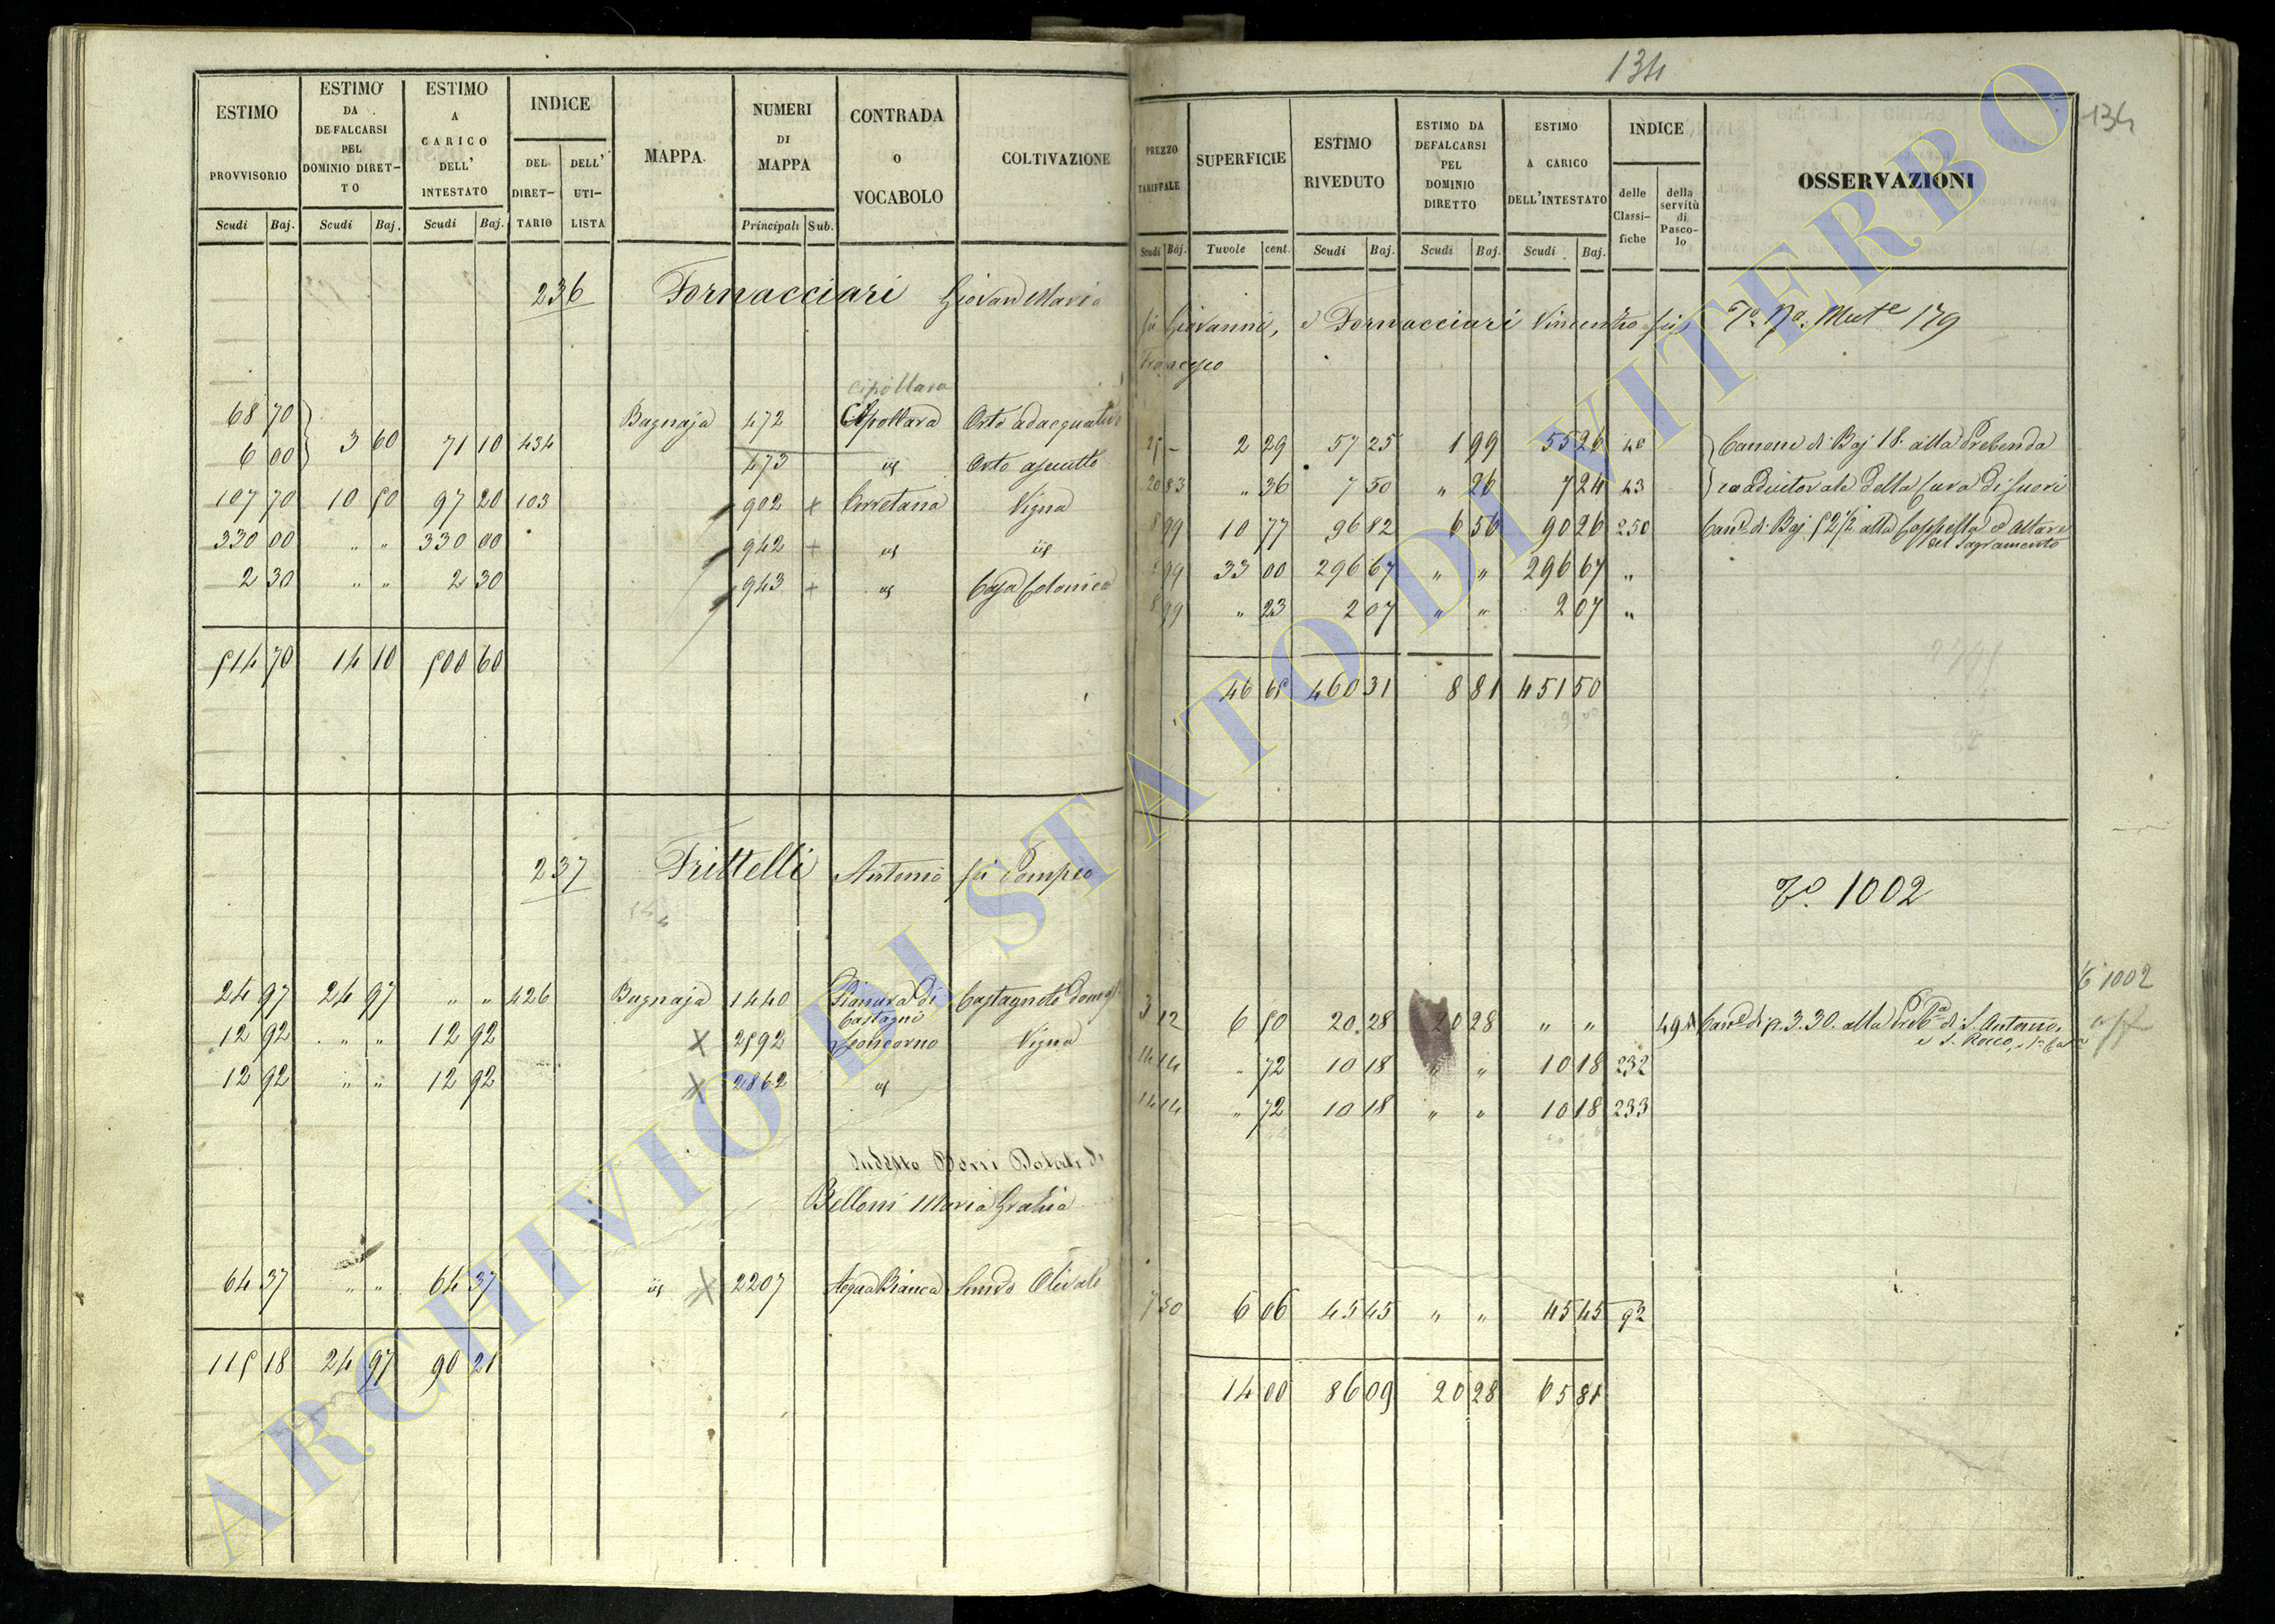 134
134
ESTIMO PROVVISORIO
ESTIMO DA DEFALCARSI PEL DOMINIO DIRET-TO
ESTIMO A CARICO DELL' INTESTATO
INDICE
DEL DIRET-TARIO
DELL' UTI-LISTA
MAPPA.
NUMERI DI MAPPA
CONTRADA O VOCABOLO
COLTIVAZIONE
Scudi Baj. Scudi Baj. Scudi Baj. Principali Sub.
PREZZO TARIFFALE
SUPERFICIE
ESTIMO RIVEDUTO
ESTIMO DA DEFALCARSI PEL DOMINIO DIRETTO
ESTIMO A CARICO DELL'INTESTATO
INDICE
delle Classi-fiche
della servitù di Pasco-lo
OSSERVAZIONI
Scudi Baj. Tavole cent. Scudi Baj. Scudi Baj. Scudi Baj.
236 Fornacciari Giovan Maria
fù Giovanni, e Fornacciari Vincenzo fù
Francesco
179
cipollara
68 70 3 60 71 10 434 Bagnaja 472 Cipollara Orto adacquativo
6 00 473 id Orto asciutto
107 70 10 50 97 20 103 902 + Cerretana Vigna
330 00 " " 330 00 942 + id id
2 30 " " 2 30 943 + id Casa Colonica
514 70 14 10 500 60
25 – 2 29 57 25 1 99 55 26 40 Canone di Baj 18. alla Prebenda
20 83 " 36 7 50 " 26 7 24 43 coadiutorale della Cura di fuori
8 99 10 77 96 82 6 56 90 26 250 Canᵉ di Baj 52½ alla Cappella ed altare
del Sagramento
8 99 33 00 296 67 " " 296 67 "
8 99 " 23 2 07 " " 2 07 "
46 65 460 31 8 81 451 50
237 Frittelli Antonio fù Pompeo
Tº. 1002
24 97 24 97 " " 426 Bagnaja 1440 Pianura di Castagno Castagneto Domest
12 92 " " 12 92 X 2592 Vigna
12 92 " " 12 92 X 2862 id
Belloni Maria Grazia
64 37 " " 64 37 id X 2207 Acqua Bianca Semᵒ Olivato
115 18 24 97 90 21
1002
3 12 6 50 20 28 20 28 " " Canᵉ di 3.30. alla Prebᵈᵃ di S. Antonio,
e S. Rocco,
14 14 " 72 10 18 " " 10 18 232
14 14 " 72 10 18 " " 10 18 233
7 50 6 06 45 45 " " 45 45 92
14 00 86 09 20 28 65 81
ARCHIVIO DI STATO DI VITERBO